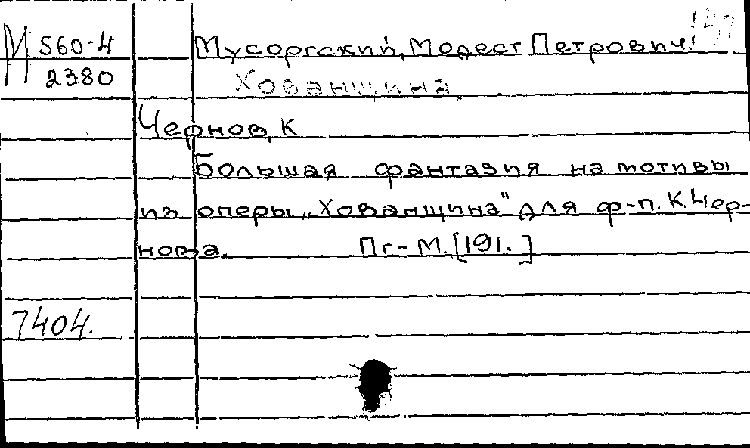 М 560-4
2380
Мусоргский, Модест Петрович.
Хованщина
Чернов, К
Большая фантазия на мотивы
из оперы „Хованщина" для ф-п. К. Чер-
нова. Пг-М. [191. ]
7404.